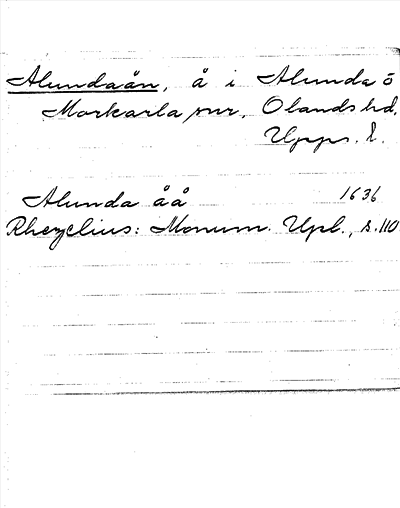 Alundaån, å i Alunda o
Morkarla snr, Olands hd.
Upps. l.
Alunda åå 1636
Rhezelius: Monum. Upl., s. 110